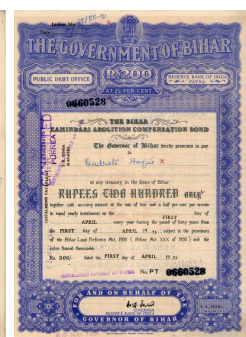 THE GOVERNMENT OF BIHAR
PUBLIC DEBT OFFICE
RS200
RESERVE BANK OF INDIA
PATNA
AT 2½ PER CENT
0660528
THE BIHAR
ZAMINDARI ABOLITION COMPENSATION BOND
The Governor of Bihar hereby promises to pay
to
at any treasury in the State of Bihar
RUPEES TWO HUNDRED ONLY
together with accruing interest at the rate of two and a half per cent per annum
in equal yearly instalments on the FIRST day of
APRIL every year during the period of forty years from
the FIRST day of APRIL 19 subject to the provisions
of the Bihar Land Reforms Act, 1950 ( Bihar Act XXX of 1950 ) and the
rules framed thereunder.
Rs. 200/- dated the FIRST day of APRIL 19
INSTALMENT PAYABLE AT PATNA
No. PT 0660528
FOR AND ON BEHALF OF
RESERVE BANK OF INDIA
GOVERNOR OF BIHAR